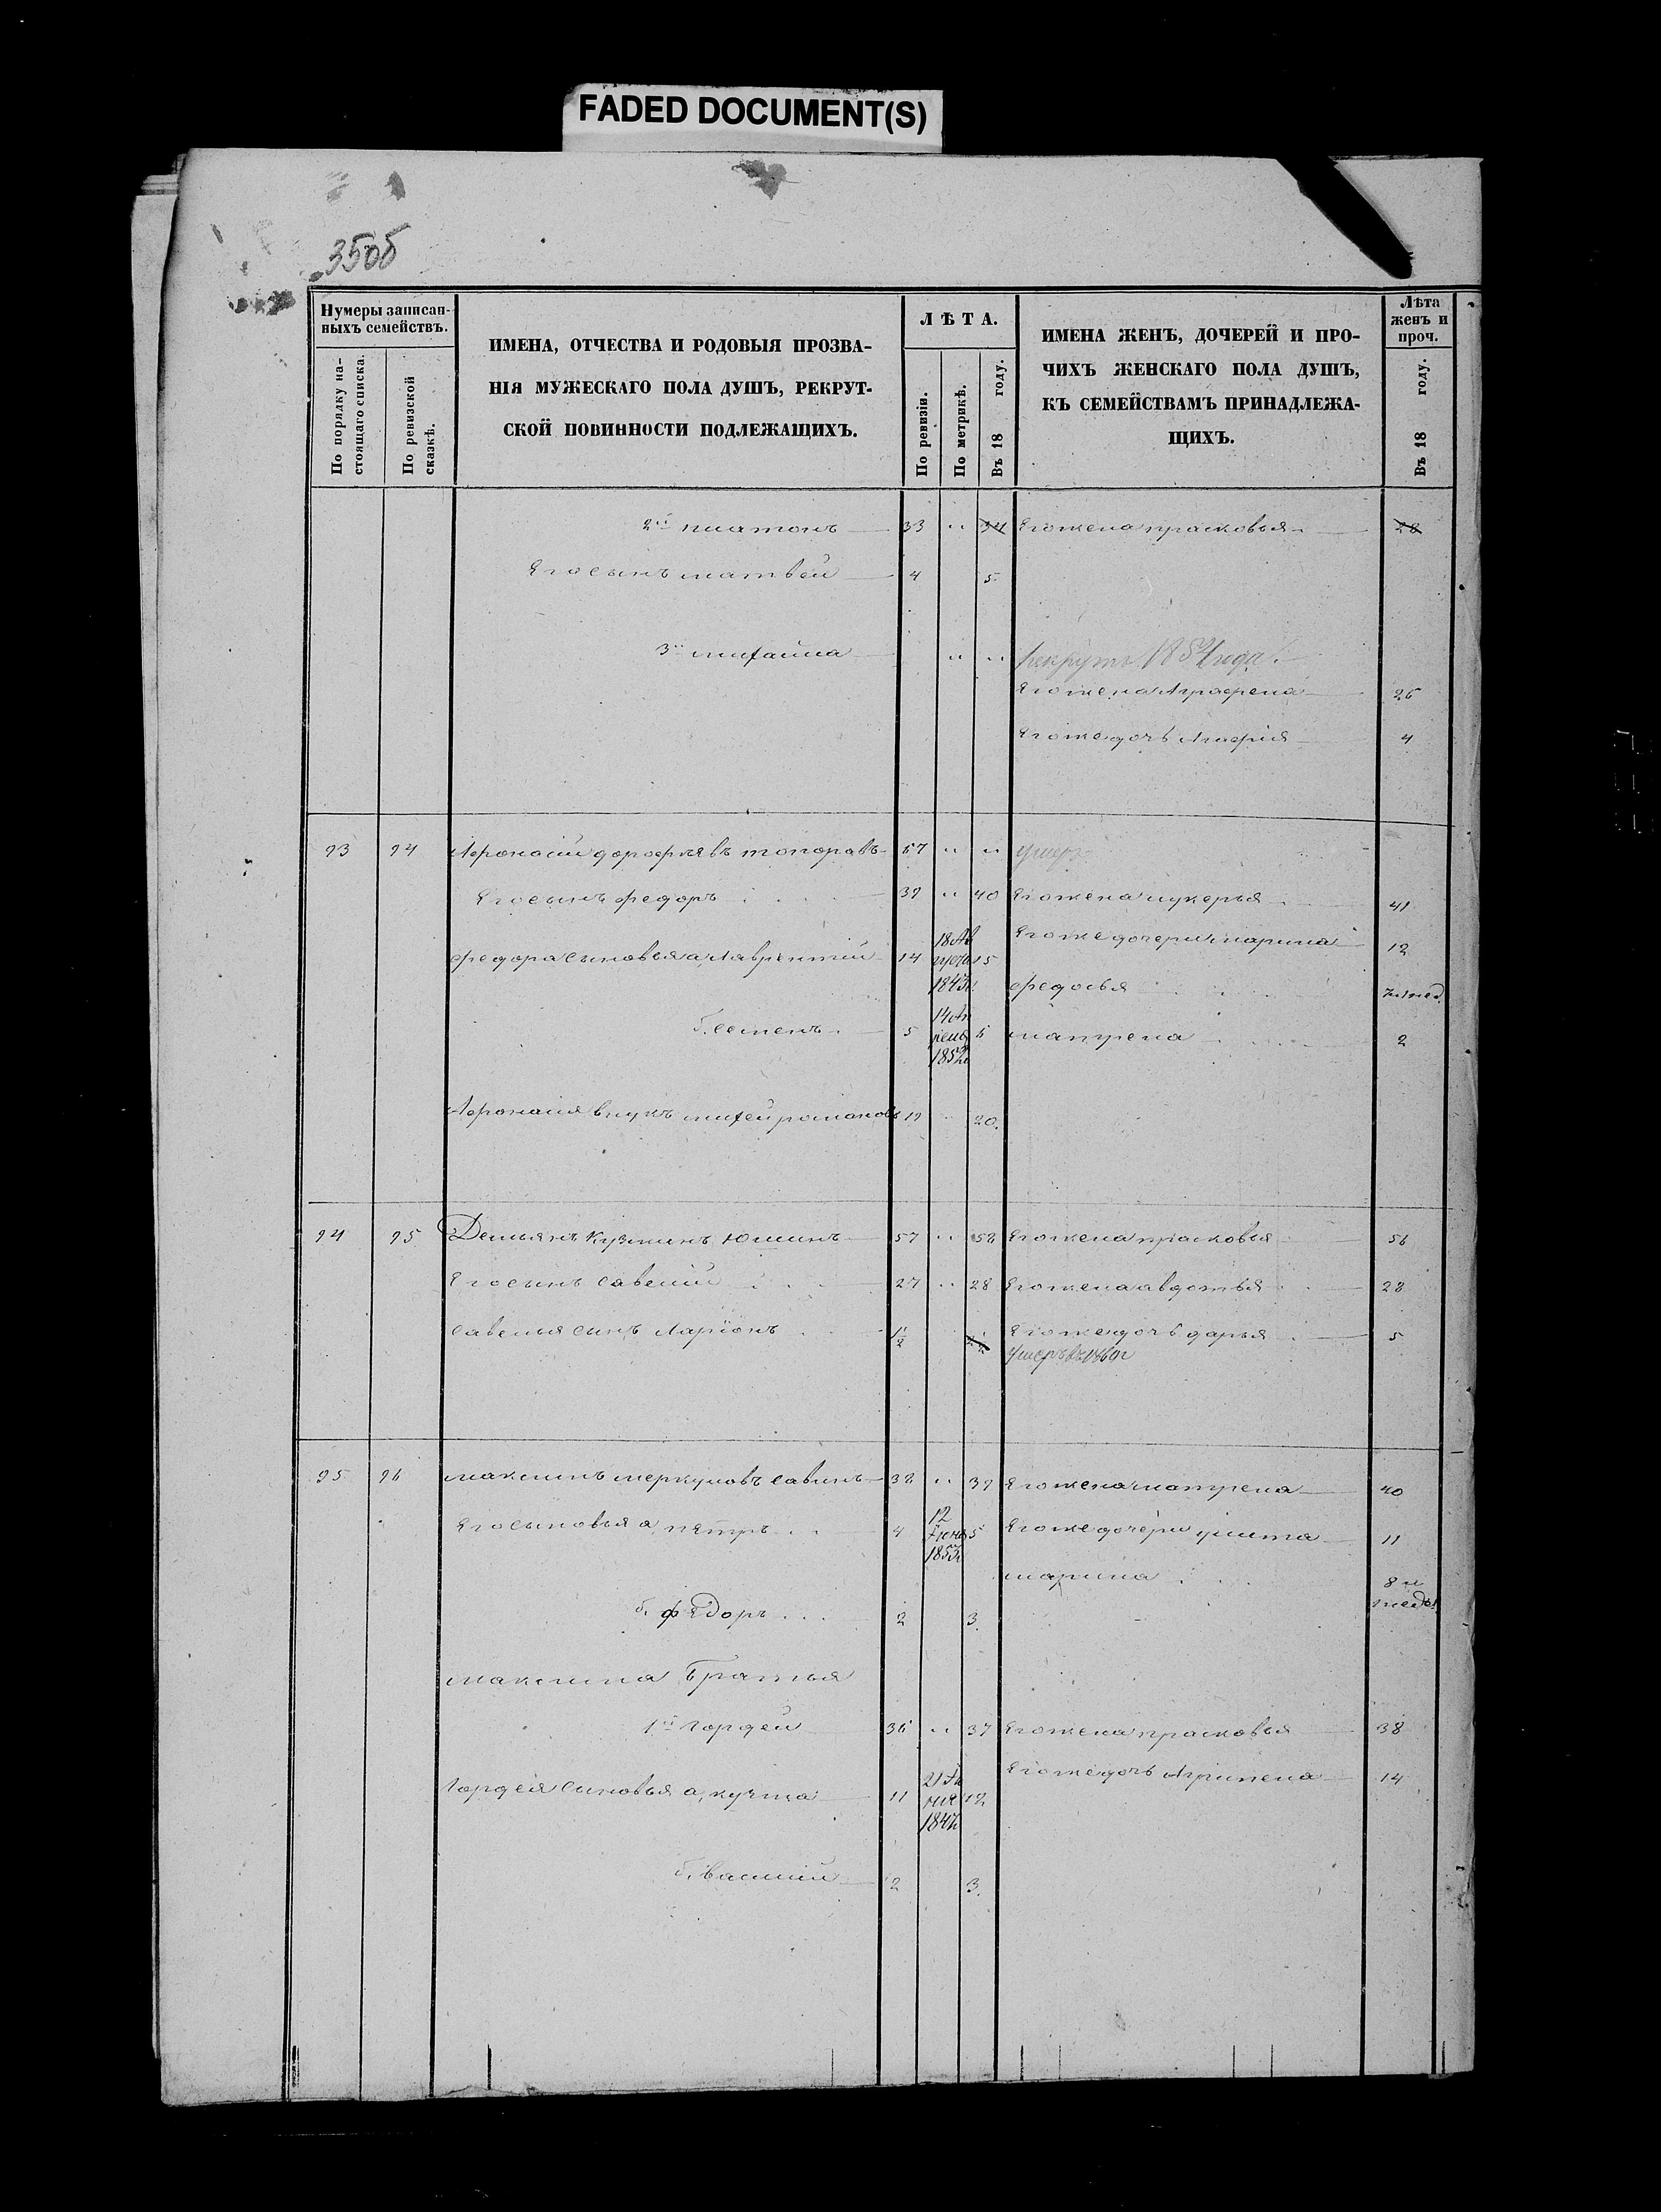 FADED DOCUMENT(S)
350б
Нумеры записан-
ныхъ семействъ.
По порядку на-
стоящаго списка.
По ревизской
сказкѣ.
ИМЕНА, ОТЧЕСТВА И РОДОВЫЯ ПРОЗВА-
НІЯ МУЖЕСКАГО ПОЛА ДУШЪ, РЕКРУТ-
СКОЙ ПОВИННОСТИ ПОДЛЕЖАЩИХЪ.
ЛѢТА.
По ревизіи.
По метрикѣ.
Въ 18 году.
ИМЕНА ЖЕНЪ, ДОЧЕРЕЙ И ПРО-
ЧИХЪ ЖЕНСКАГО ПОЛА ДУШЪ,
КЪ СЕМЕЙСТВАМЪ ПРИНАДЛЕЖА-
ЩИХЪ.
Лѣта
женъ и
проч.
Въ 18 году.
2й платонъ 33 " 34 Его жена прасковья 28
Его сынъ матвей 4 5
3й михайла " " рекрутъ 1854 года.
Его жена Аграфена 26
Его же дочь 4
93 94 Афонасій дорофѣевъ топоравъ 57 " " умеръ
Его сынъ федоръ 39 " 40 Его жена лукерья 41
Его же дочери марина 12
федора сыновья а, Лаврентій 14 18 Ав
густа 15
1843г.
федосья
б. семенъ 5 1852г 6 матрена 2
Афонасія внукъ михей романовъ 19 " 20.
94 95 Демьянъ Кузминъ Юшинъ 57 " 58 Его жена прасковья 56
Его сынъ савелій 27 " 28 Его жена авдотья 28
савелья сынъ Ларіонъ 1/2 Его же дочь дарья 5
умеръ въ
95 96 максимъ меркуловъ савинъ 38 " 39 Его жена матрена 40
Его сыновья а, петръ 4 12
Іюня 5
1853г
Его же дочери улита 11
марина 8 и
недѣл.
б. фѣдоръ 2 3.
максима Братья
1й Гордей 36 " 37 Его жена прасковья 38
Его же дочь Агрипена 14
Гордея сыновья а, кузма 11 12
б. василій 2 3.